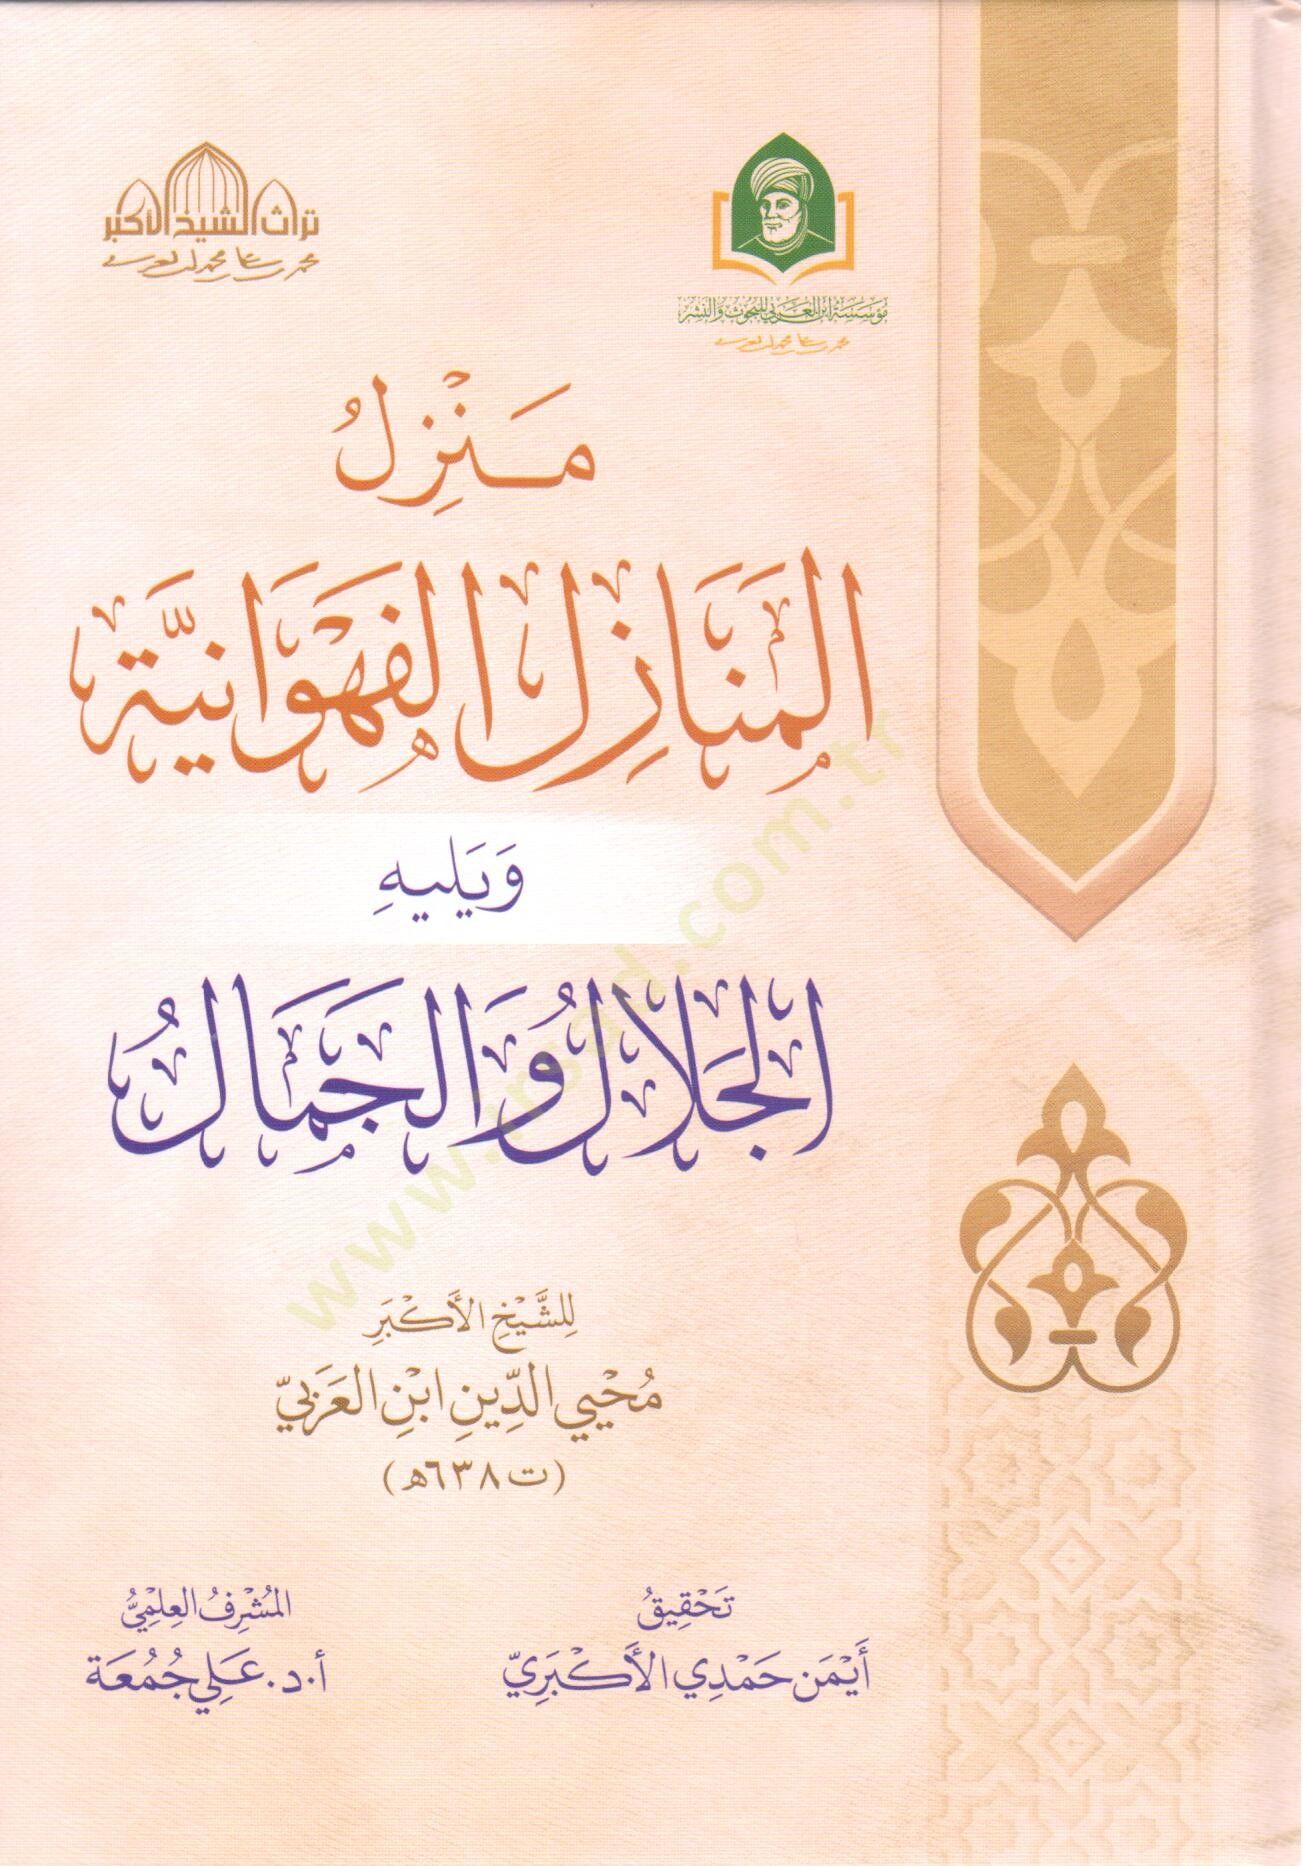 مؤسسة ابن العربي للبحوث والنشر
تراث الشيخ الأكبر
مَنْزِلُ
المَنَازِلِ الفَهْوَانِيَّة
وَيَلِيهِ
الجَلَالُ وَالجَمَالُ
لِلشَّيْخِ الأَكْبَرِ
مُحْيِي الدِّينِ ابْنِ العَرَبِيّ
(ت ٦٣٨هـ)
تَحْقِيقُ
أَيْمَن حَمْدِي الأَكْبَرِيّ
المُشْرِفُ العِلْمِيُّ
أ.د. عَلِي جُمُعَة
www.irsad.com.tr